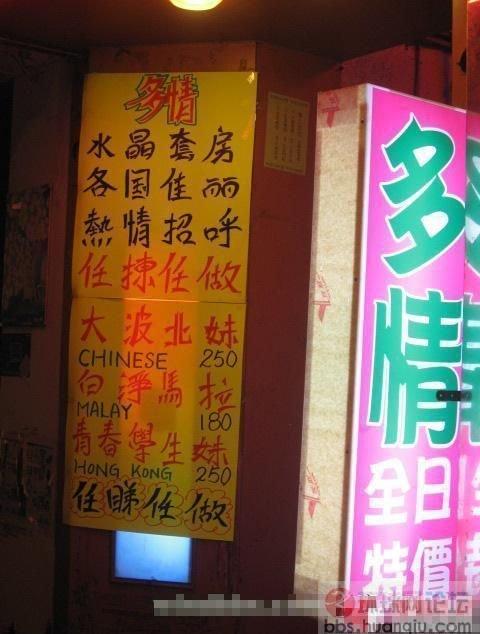 多情
水晶套房
各国佳丽
熱情招呼
任揀任做
大波北妹
CHINESE 250
白淨馬拉
MALAY 180
青春學生妹
HONG KONG 250
任睇任做
多情
全日
特價
环球网论坛
bbs.huanqiu.com